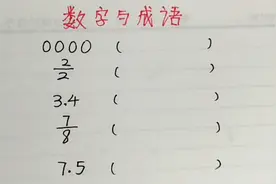 数字与成语
0000 ( )
2/2 ( )
3.4 ( )
7/8 ( )
7.5 ( )